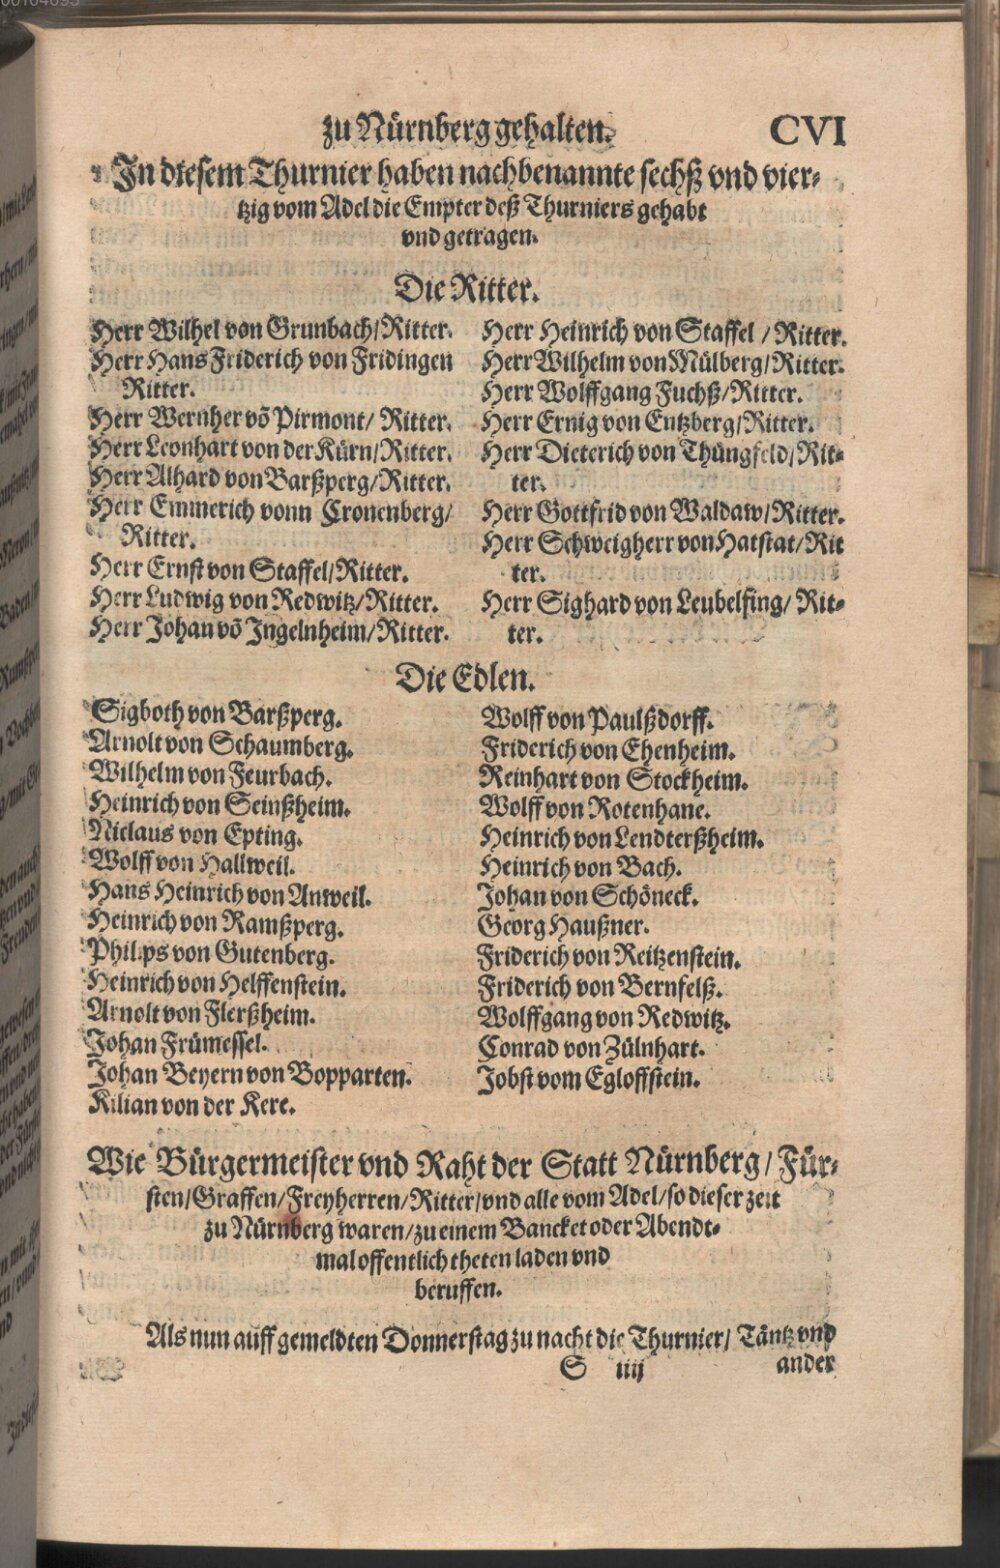 zu Nürnberg gehalten. CVI
In diesem Thurnier haben nachbenannte sechß vnd vier-
tzig vom Adel die Empter deß Thurniers gehabt
vnd getragen.
Die Ritter.
Herr Wilhel von Grunbach/Ritter.
Herr Hans Friderich von Fridingen
Ritter.
Herr Wernher võ Pirmont/ Ritter.
Herr Leonhart von der Kürn/Ritter.
Herr Alhard von Barßperg/Ritter.
Herr Emmerich vonn Cronenberg/
Ritter.
Herr Ernst von Staffel/Ritter.
Herr Ludwig von Redwitz/Ritter.
Herr Johan võ Ingelnheim/Ritter.
Herr Heinrich von Staffel / Ritter.
Herr Wilhelm von Mülberg/Ritter.
Herr Wolffgang Fuchß/Ritter.
Herr Ernig von Entzberg/Ritter.
Herr Dieterich von Thüngfeld/Rit-
ter.
Herr Gottfrid von Waldaw/Ritter.
Herr Schweigherr von Hatstat/Rit
ter.
Herr Sighard von Leubelfing/ Rit-
ter.
Die Edlen.
Sigboth von Barßperg.
Arnolt von Schaumberg.
Wilhelm von Feurbach.
Heinrich von Seinßheim.
Niclaus von Epting.
Wolff von Hallweil.
Hans Heinrich von Anweil.
Heinrich von Ramßperg.
Philips von Gutenberg.
Heinrich von Helffenstein.
Arnolt von Flerßheim.
Johan Frümessel.
Johan Beyern von Bopparten.
Kilian von der Kere.
Wolff von Paulßdorff.
Friderich von Ehenheim.
Reinhart von Stockheim.
Wolff von Rotenhane.
Heinrich von Lendterßheim.
Heinrich von Bach.
Johan von Schöneck.
Georg Haußner.
Friderich von Reitzenstein.
Friderich von Bernfelß.
Wolffgang von Redwitz.
Conrad von Zülnhart.
Jobst vom Egloffstein.
Wie Bürgermeister vnd Raht der Statt Nürnberg / Für-
sten/Graffen/Freyherren/Ritter/vnd alle vom Adel/so dieser zeit
zu Nürnberg waren/zu einem Bancket oder Abendt-
mal offentlich theten laden vnd
beruffen.
Als nun auff gemeldten Donnerstag zu nacht die Thurnier/ Täntz vnd
S iiij ander